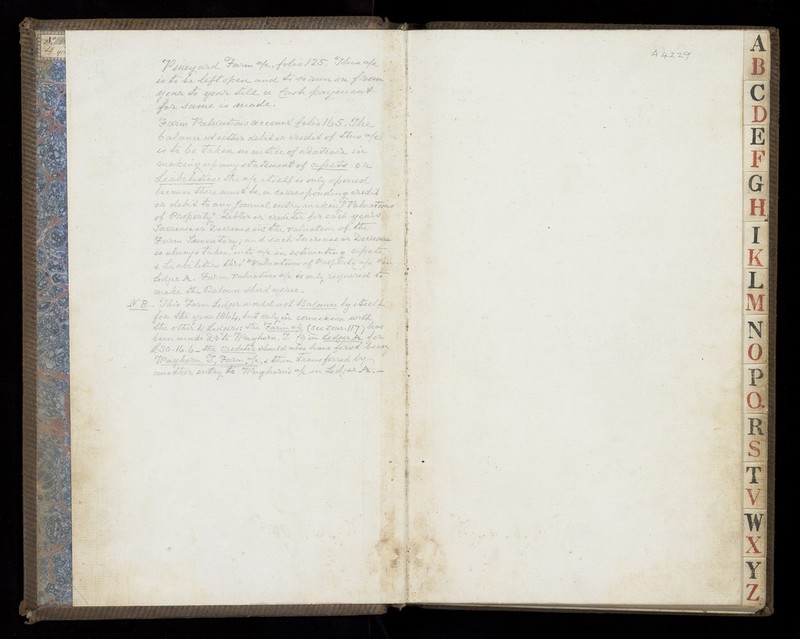 Vineyard Farm a/c, folio 125. This a/c
is to be left open and to so run on from
year to year till a Cash payment
for same is made.
Farm Valuations account folio 165. The
balance at either debit or credit of this a/c
is to be taken no notice of whatever in
making up any statement of assets or
Liabilities: the a/c itself is only opened
because there must be a corresponding credit
or debit to any Journal entry making "Valuations
of Property" Debtor or creditor for each years
Increase or Decrease in the valuation of the
Farm Inventory; and each Increase or Decrease
is always taken into a/c in estimating assets
& Liabilities thro' "Valuations of Property" a/c
Ledger A. Farm Valuations a/c is only required to
make the Balance sheet agree.
N.B. This Farm Ledger would not balance by itself
for the year 1864, but only in connexion with
the other Ledgers: the Farm a/c (see Jour. 117) has
been made Dr to Waghorn. T in Ledger A for
£50.16.6 the creditor should have first been
Waghorn T, Farm a/c, & then transferred by
another entry to Waghorn's a/c in Ledger A.—
A4229
A
B
C
D
E
F
G
H
I
K
L
M
N
O
P
Q.
R
S
T
V
W
X
Y
Z